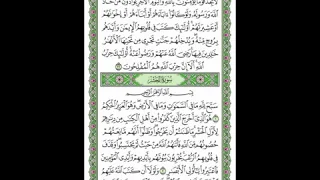 لَّا تَجِدُ قَوْمًا يُؤْمِنُونَ بِاللَّهِ وَالْيَوْمِ الْآخِرِ يُوَادُّونَ مَنْ حَادَّ
اللَّهَ وَرَسُولَهُ وَلَوْ كَانُوا آبَاءَهُمْ أَوْ أَبْنَاءَهُمْ أَوْ إِخْوَانَهُمْ
أَوْ عَشِيرَتَهُمْ أُولَٰئِكَ كَتَبَ فِي قُلُوبِهِمُ الْإِيمَانَ وَأَيَّدَهُم
بِرُوحٍ مِّنْهُ وَيُدْخِلُهُمْ جَنَّاتٍ تَجْرِي مِن تَحْتِهَا الْأَنْهَارُ
خَالِدِينَ فِيهَا رَضِيَ اللَّهُ عَنْهُمْ وَرَضُوا عَنْهُ أُولَٰئِكَ حِزْبُ
اللَّهِ أَلَا إِنَّ حِزْبَ اللَّهِ هُمُ الْمُفْلِحُونَ
سُورَةُ الْحَشْرِ
بِسْمِ اللَّهِ الرَّحْمَٰنِ الرَّحِيمِ
سَبَّحَ لِلَّهِ مَا فِي السَّمَاوَاتِ وَمَا فِي الْأَرْضِ وَهُوَ الْعَزِيزُ الْحَكِيمُ
هُوَ الَّذِي أَخْرَجَ الَّذِينَ كَفَرُوا مِنْ أَهْلِ الْكِتَابِ مِن دِيَارِهِمْ
لِأَوَّلِ الْحَشْرِ مَا ظَنَنتُمْ أَن يَخْرُجُوا وَظَنُّوا أَنَّهُم مَّانِعَتُهُمْ
حُصُونُهُم مِّنَ اللَّهِ فَأَتَاهُمُ اللَّهُ مِنْ حَيْثُ لَمْ يَحْتَسِبُوا وَقَذَفَ
فِي قُلُوبِهِمُ الرُّعْبَ يُخْرِبُونَ بُيُوتَهُم بِأَيْدِيهِمْ وَأَيْدِي الْمُؤْمِنِينَ
فَاعْتَبِرُوا يَا أُولِي الْأَبْصَارِ وَلَوْلَا أَن كَتَبَ اللَّهُ عَلَيْهِمُ